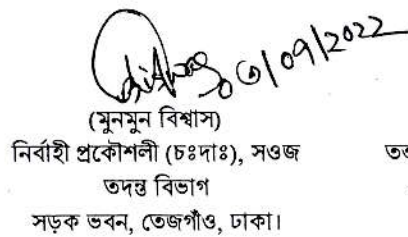 ০৫/০৭/2022
(মুনমুন বিশ্বাস)
নির্বাহী প্রকৌশলী (চঃদাঃ), সওজ
তদন্ত বিভাগ
সড়ক ভবন, তেজগাঁও, ঢাকা।